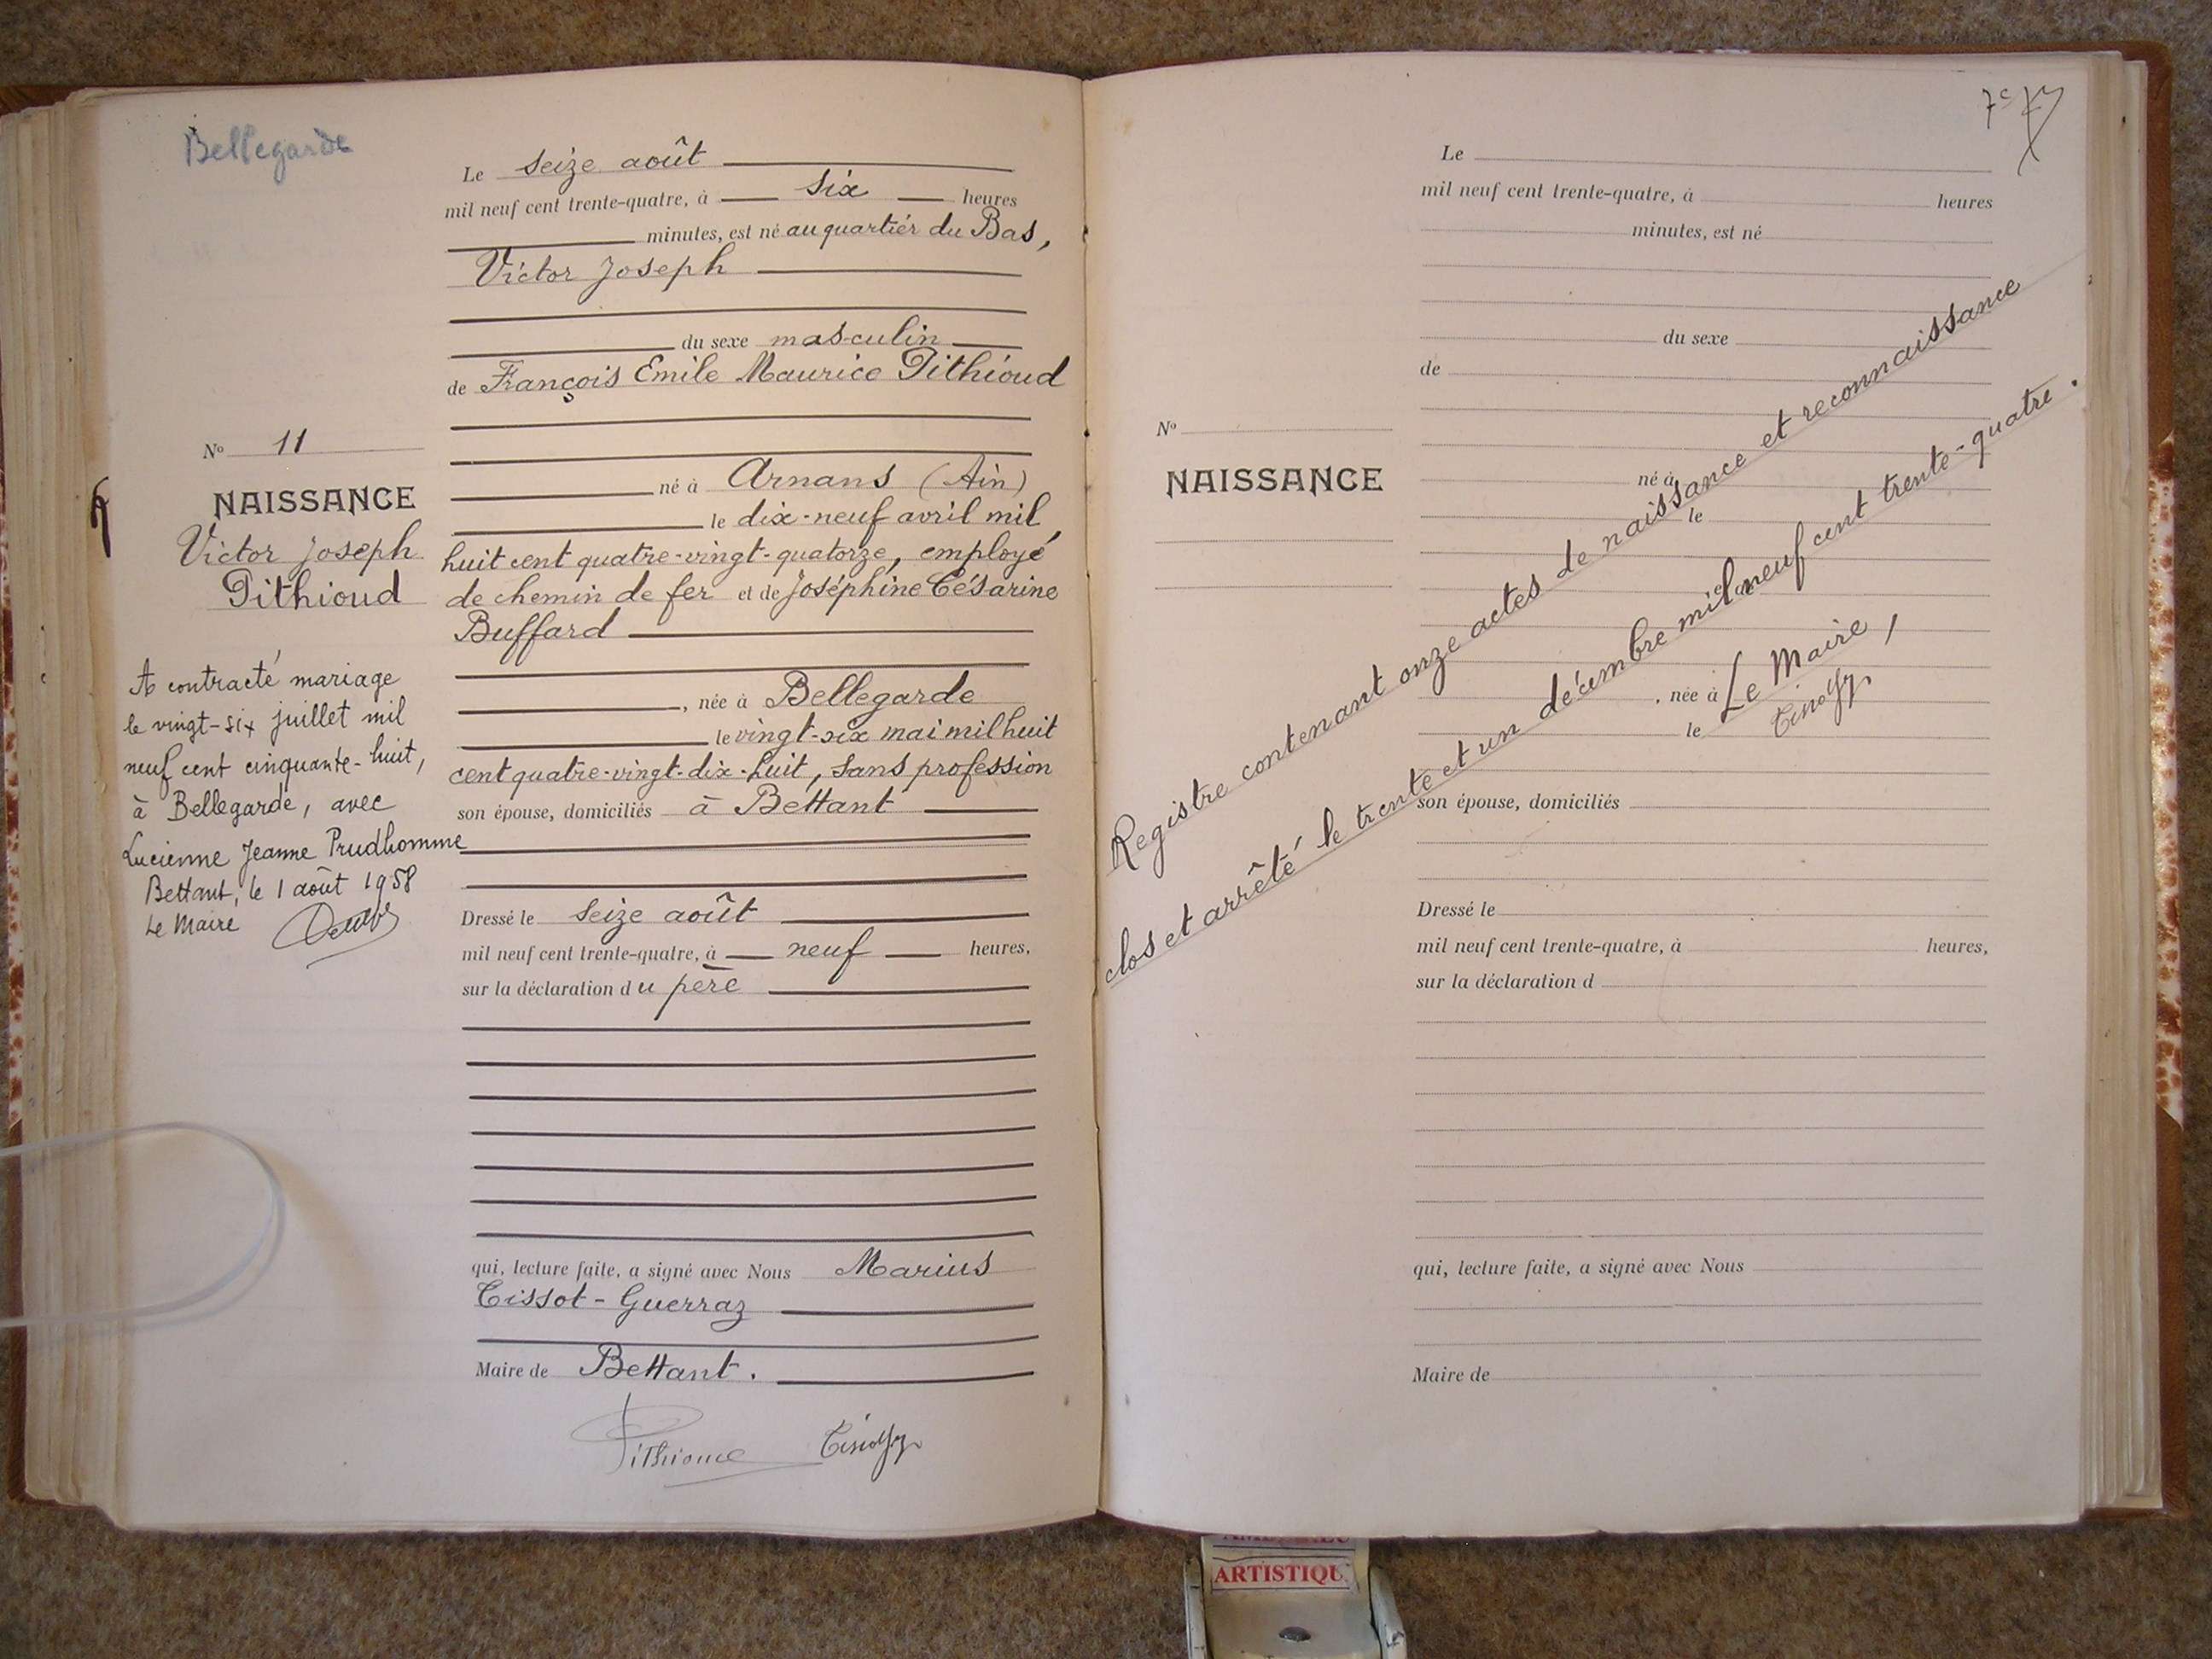 Bellegarde
Le seize août
mil neuf cent trente-quatre, à six heures
minutes, est né au quartier du Bas,
Victor Joseph
du sexe masculin
de François Emile Maurice Pithioud
né à Arnans (Ain)
le dix-neuf avril mil
huit cent quatre-vingt-quatorze, employé
de chemin de fer et de Joséphine Césarine
Buffard
, née à Bellegarde
le vingt-six mai mil huit
cent quatre-vingt-dix-huit, sans profession
son épouse, domiciliés à Bettant
Dressé le seize août
mil neuf cent trente-quatre, à neuf heures,
sur la déclaration du père
qui, lecture faite, a signé avec Nous Marius
Tissot-Guerraz
Maire de Bettant.
Pithioud
No 11
NAISSANCE
Victor Joseph
Pithioud
A contracté mariage
le vingt-six juillet mil
neuf cent cinquante-huit,
à Bellegarde, avec
Lucienne Jeanne Prudhomme
Bettant, le 1 août 1958
Le Maire
7e
Le
mil neuf cent trente-quatre, à heures
minutes, est né
du sexe
de
No
NAISSANCE
né à
le
et de
, née à
le
son épouse, domiciliés
Dressé le
mil neuf cent trente-quatre, à heures,
sur la déclaration d
qui, lecture faite, a signé avec Nous
Maire de
Registre contenant onze actes de naissance et reconnaissance
clos et arrêté le trente et un décembre mil neuf cent trente-quatre.
Le Maire,
ARTISTIQU